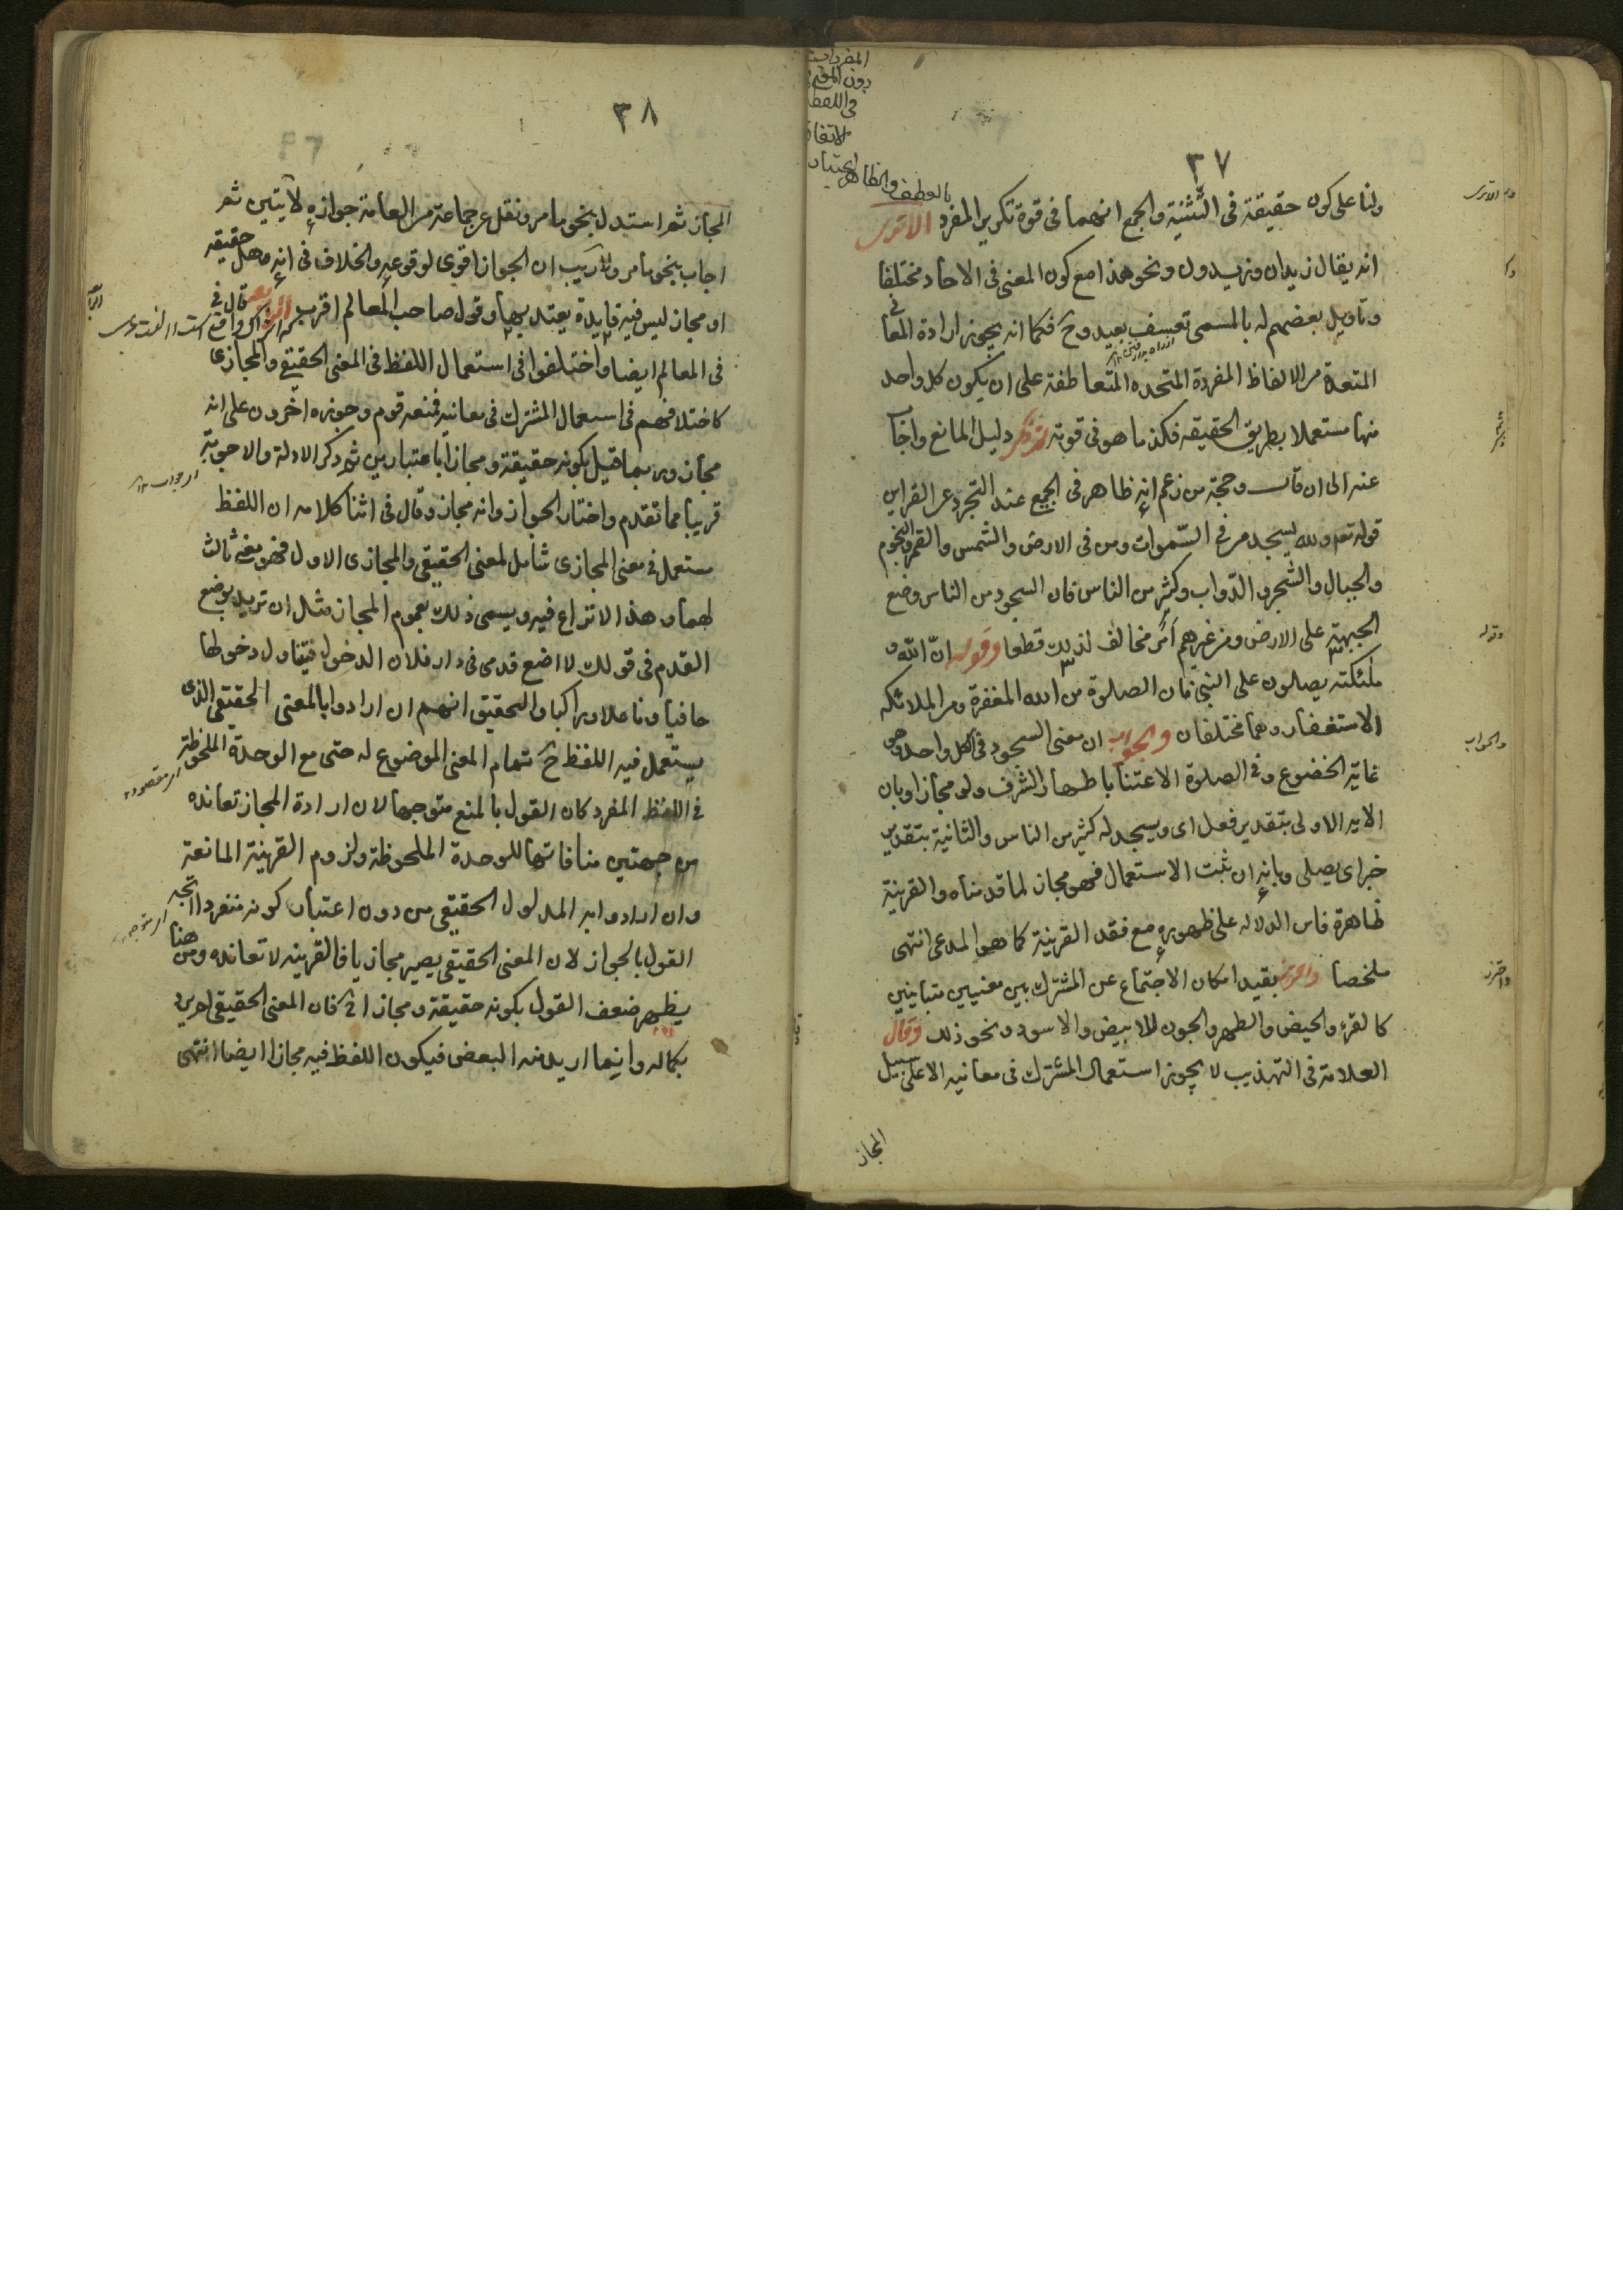 ٣٧
ولنا على كونه حقيقة فى التّثنية والجمع انهما فى قوة تكرير المفرد بالعطف والظاهر اعتبار
الاتفاق
فى اللفظ
دون المعنى
المفردات
الا ترى
انه يقال زيدان وزيدون ونحو هذا مع كون المعنى فى الاحاد مختلفا
وتاويل بعضهم له بالمسمى تعسف بعيد وح فكما انه يجوز ارادة المعانى
المتعددة من الالفاظ المفردة المتحده المتعاطفة على ان يكون كل واحد
منها مستعملا بطريق الحقيقه فكذا ما هو فى قوته ثم ذكر دليل المانع واجاب
عنه الى ان قال وحجة من زعم انه ظاهر فى الجميع عند التجرد عن القراين
قوله تعه ولله يسجد من فى السّموات ومن فى الارض والشمس والقمر والنجوم
والجبال والشجر والدّواب وكثير من الناس فان السجود من الناس وضع
الجبهة على الارض ومن غيرهم امر مخالف لذلك قطعا وقوله انّ الله و
ملئكته يصلون على النبى فان الصلوة من الله المغفرة ومن الملائكه
الاستغفار وهما مختلفان والجواب ان معنى السجود فى الكل واحد وهو
غاية الخضوع وفى الصلوة الاعتنا باظهار الشرف ولو مجازا وبان
الايه الاولى بتقدير فعل اى ويسجد له كثير من الناس والثانية بتقدير
خبر اى يصلى وبانه ان ثبت الاستعمال فهو مجاز لما قدمناه والقرينة
ظاهرة فاين الدلاله على ظهوره مع فقد القرينة كما هو المدعى انتهى
ملخصا واحترز بقيد امكان الاجتماع عن المشترك بين معنيين متباينين
كالقرء والحيض والطهر والجون للابيض والاسود ونحو ذلك وقال
العلامة فى التهذيب لا يجوز استعمال المشترك فى معانيه الا على سبيل
المجاز
وقوله
والجواب
واحترز
٣٨
المجاز ثم استدل بنحو ما مر ونقل عن جماعة من العامة جوازه لآيتين ثم
اجاب بنحو ما مر ولا ريب ان الجواز اقوى لوقوعه والخلاف فى انه هل حقيقه
او مجاز ليس فيه فايدة يعتد بها وقول صاحب المعالم اقرب قال فى
فى المعالم ايضا واختلفوا فى استعمال اللفظ فى المعنى الحقيقى والمجازى
كاختلافهم فى استعمال المشترك فى معانيه فمنعه قوم وجوزه اخرون على انه
مجاز وربما قيل بكونه حقيقة ومجازا باعتبارين ثم ذكر الادلة والاجوبة
قريبا مما تقدم واختار الجواز وانه مجاز وقال فى اثنا كلامه ان اللفظ
مستعمل فى معنى المجازى شامل لمعنى الحقيقى والمجازى الاول فهو معنى ثالث
لهما وهذا لا نزاع فيه ويسمى ذلك بعموم المجاز مثل ان تريد بوضع
القدم فى قولك لا اضع قدمى فى دار فلان الدخول فيتناول دخولها
حافيا وناعلا وراكبا والتحقيق انهم ان ارادوا بالمعنى الحقيقى الذى
يستعمل فيه اللفظ ح تمام المعنى الموضوع له حتى مع الوحدة الملحوظة
فى اللفظ المفرد كان القول بالمنع متوجها لان ارادة المجاز تعانده
من جهتين منافاتها للوحدة الملحوظة ولزوم القرينة المانعة
وان ارادوا به المدلول الحقيقى من دون اعتبار كونه منفردا اتجه
القول بالجواز لان المعنى الحقيقى يصير مجازيا فالقرينه لا تعانده ومن هنا
يظهر ضعف القول بكونه حقيقة ومجازا فان المعنى الحقيقى لم يرد
بكماله وانما اريد منه البعض فيكون اللفظ فيه مجازا ايضا انتهى